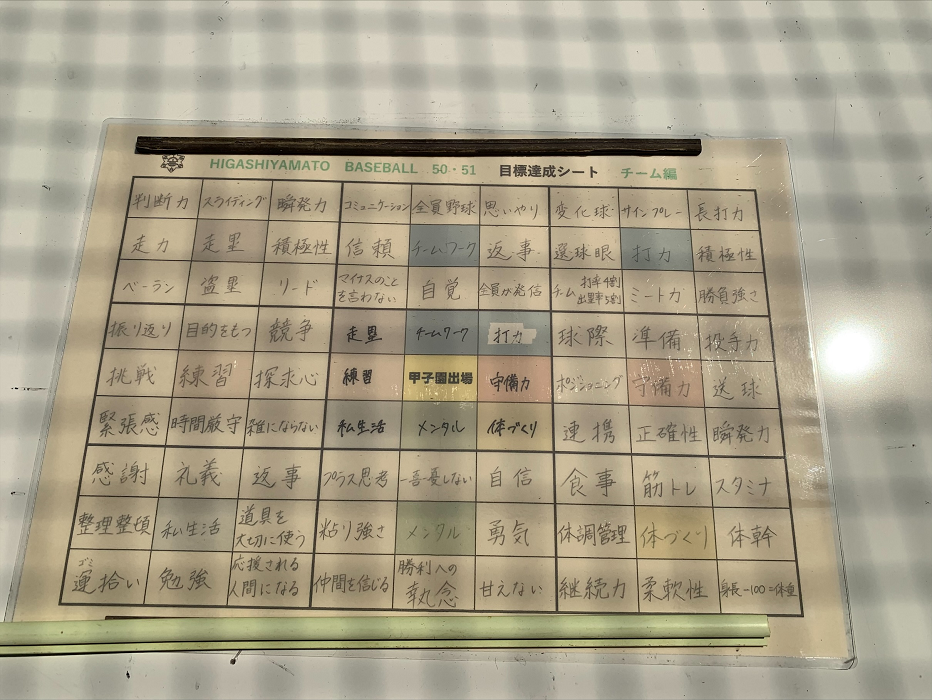 HIGASHIYAMATO BASEBALL 50・51 目標達成シート チーム編
判断力 スライディング 瞬発力 コミュニケーション 全員野球 思いやり 変化球 サインプレー 長打力
走力 走塁 積極性 信頼 チームワーク 返事 選球眼 打力 積極性
ベーラン 盗塁 リード マイナスのことを言わない 自覚 全員が発信 チーム打率4割出塁率5割 ミート力 勝負強さ
振り返り 目的をもつ 競争 走塁 チームワーク 打力 球際 準備 投手力
挑戦 練習 探求心 練習 甲子園出場 守備力 ポジショニング 守備力 送球
緊張感 時間厳守 雑にならない 私生活 メンタル 体づくり 連携 正確性 瞬発力
感謝 礼義 返事 プラス思考 一喜一憂しない 自信 食事 筋トレ スタミナ
整理整頓 私生活 道具を大切に使う 粘り強さ メンタル 勇気 体調管理 体づくり 体幹
運拾い ゴミ 勉強 応援される人間になる 仲間を信じる 勝利への執念 甘えない 継続力 柔軟性 身長-100=体重